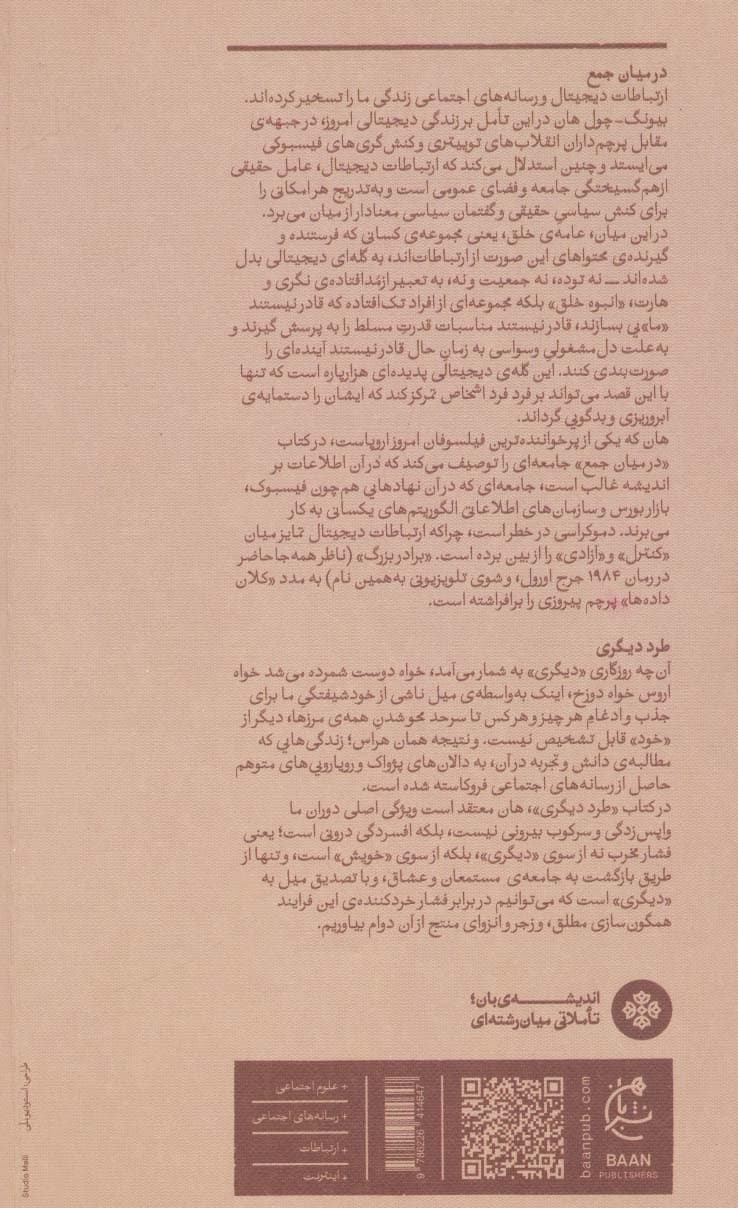 در میان جمع
ارتباطات دیجیتال و رسانه‌های اجتماعی زندگی ما را تسخیر کرده‌اند.
بیونگ-چول هان در این تأمل بر زندگی دیجیتالی امروز، در جبهه‌ی
مقابل پرچم‌داران انقلاب‌های توییتری و کنش‌گری‌های فیسبوکی
می‌ایستد و چنین استدلال می‌کند که ارتباطات دیجیتال، عامل حقیقی
ازهم‌گسیختگی جامعه و فضای عمومی است و به‌تدریج هر امکانی را
برای کنش سیاسیِ حقیقی و گفتمان سیاسی معنادار از میان می‌برد.
در این میان، عامه‌ی خلق، یعنی مجموعه‌ی کسانی که فرستنده و
گیرنده‌ی محتواهای این صورت از ارتباطات‌اند، به گله‌ای دیجیتالی بدل
شده‌اند — نه توده، نه جمعیت و نه، به تعبیر ازمُدافتاده‌ی نگری و
هارت، «انبوه خلق» بلکه مجموعه‌ای از افراد تک‌افتاده که قادر نیستند
«ما»یی بسازند، قادر نیستند مناسبات قدرتِ مسلط را به پرسش گیرند و
به علت دل‌مشغولیِ وسواسی به زمانِ حال قادر نیستند آینده‌ای را
صورت‌بندی کنند. این گله‌ی دیجیتالی پدیده‌ای هزارپاره است که تنها
با این قصد می‌تواند بر فرد فرد اشخاص تمرکز کند که ایشان را دستمایه‌ی
آبروریزی و بدگویی گرداند.
هان که یکی از پرخواننده‌ترین فیلسوفان امروز اروپاست، در کتاب
«در میان جمع» جامعه‌ای را توصیف می‌کند که در آن اطلاعات بر
اندیشه غالب است، جامعه‌ای که در آن نهادهایی هم‌چون فیسبوک،
بازار بورس و سازمان‌های اطلاعاتی الگوریتم‌های یکسانی به کار
می‌برند. دموکراسی در خطر است، چراکه ارتباطات دیجیتال تمایز میان
«کنترل» و «آزادی» را از بین برده است. «برادر بزرگ» (ناظر همه‌جا حاضر
در رمان ۱۹۸۴ جرج اورول، و شوی تلویزیونی به همین نام) به مدد «کلان
داده‌ها» پرچم پیروزی را برافراشته است.
طرد دیگری
آن‌چه روزگاری «دیگری» به شمار می‌آمد، خواه دوست شمرده می‌شد خواه
اروس خواه دوزخ، اینک به‌واسطه‌ی میل ناشی از خودشیفتگیِ ما برای
جذب و ادغامِ هر چیز و هر کس تا سرحد محو شدنِ همه‌ی مرزها، دیگر از
«خود» قابل تشخیص نیست. و نتیجه همان هراس؛ زندگی‌هایی که
مطالبه‌ی دانش و تجربه در آن، به دالان‌های پژواک و رویارویی‌های متوهم
حاصل از رسانه‌های اجتماعی فروکاسته شده است.
در کتاب «طرد دیگری»، هان معتقد است ویژگی اصلی دوران ما
واپس‌زدگی و سرکوب بیرونی نیست، بلکه افسردگی درونی است؛ یعنی
فشار مخرب نه از سوی «دیگری»، بلکه از سوی «خویش» است، و تنها از
طریق بازگشت به جامعه‌ی مستمعان و عشاق، و با تصدیق میل به
«دیگری» است که می‌توانیم در برابر فشار خردکننده‌ی این فرایند
همگون‌سازی مطلق، و زجر و انزوای منتج از آن دوام بیاوریم.
اندیشه‌ی بان؛
تأملاتی میان‌رشته‌ای
نشر بان
BAAN
PUBLISHERS
baanpub.com
9 780226 414647
+ علوم اجتماعی
+ رسانه‌های اجتماعی
+ ارتباطات
+ اینترنت
طراحی: استودیو ملی
Studio Melli